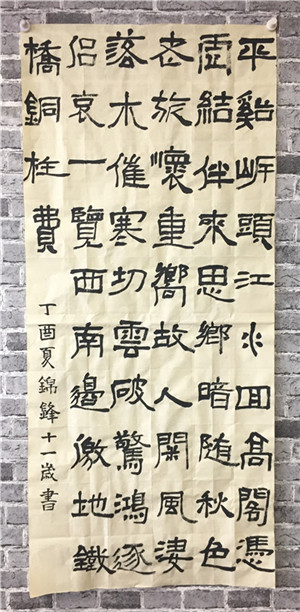 平谿岍頭江水回高閣憑
虛結伴來思鄉暗隨秋色
老旅懷重嚮故人開風淒
落木催寒切雲破驚鴻逐
侶哀一覽西南邊徼地鐵
橋銅柱費
丁酉夏錦鋒十一歲書